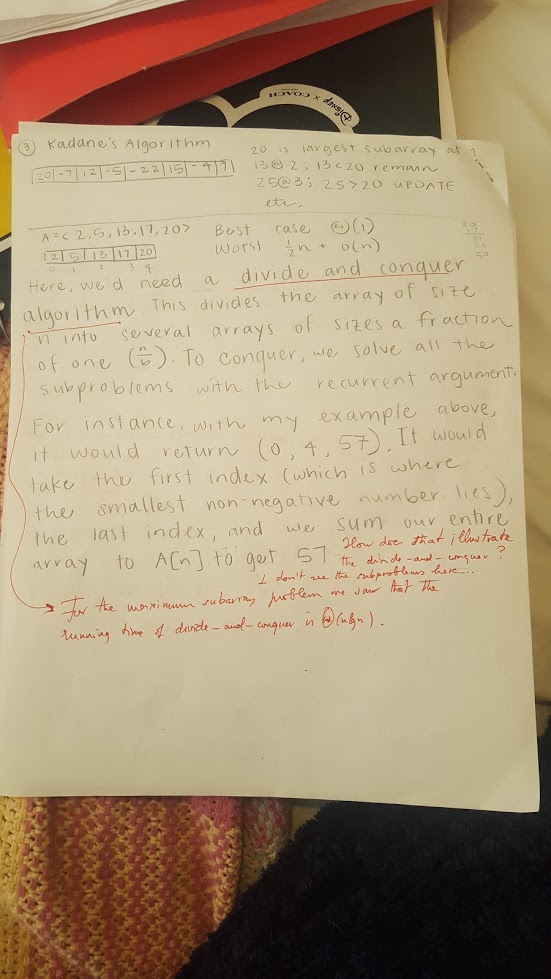 DISNEP x COACH
③ Kadane's Algorithm
20 is largest subarray at 1
|20|-7|12|-5|-22|15|-4|7|
13@2; 13<20 remain
25@3; 25>20 UPDATE
etc.
A=< 2,5,13,17,20>
Best case Θ(1)
|2|5|13|17|20|
Worst ½n + O(n)
0 1 2 3 4
Here, we'd need a divide and conquer
algorithm. This divides the array of size
n into several arrays of sizes a fraction
of one (n/b). To conquer, we solve all the
subproblems with the recurrent argument.
For instance, with my example above,
it would return (0, 4, 57). It would
take the first index (which is where
the smallest non-negative number lies),
the last index, and we sum our entire
array to A[n] to get 57
How does that illustrate
the divide-and-conquer?
I don't see the subproblems here...
For the maximum subarray problem we saw that the
running time of divide-and-conquer is Θ(nlgn).